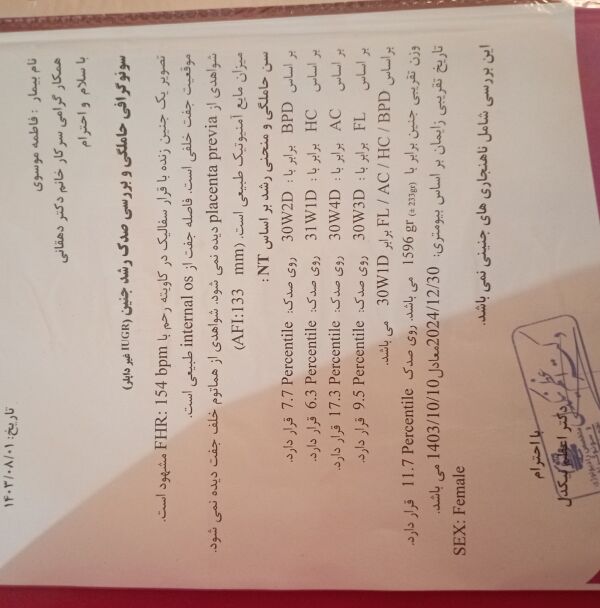 تاریخ: ۱۴۰۳/۰۸/۰۱
نام بیمار : فاطمه موسوی
همکار گرامی سرکار خانم دکتر دهقانی
با سلام و احترام
سونوگرافی حاملگی و بررسی صدک رشد جنین (IUGR غیر داپلر)
تصویر یک جنین زنده با قرار سفالیک در کاویته رحم با FHR: 154 bpm مشهود است.
موقعیت جفت خلفی است. فاصله جفت از internal os طبیعی است.
شواهدی از placenta previa دیده نمی شود. شواهدی از هماتوم خلف جفت دیده نمی شود.
میزان مایع آمنیوتیک طبیعی است. (AFI:133 mm)
سن حاملگی و منحنی رشد بر اساس NT :
بر اساس BPD برابر با : 30W2D روی صدک: 7.7 Percentile قرار دارد.
بر اساس HC برابر با : 31W1D روی صدک: 6.3 Percentile قرار دارد.
بر اساس AC برابر با : 30W4D روی صدک: 17.3 Percentile قرار دارد.
بر اساس FL برابر با : 30W3D روی صدک: 9.5 Percentile قرار دارد.
براساس FL / AC / HC / BPD برابر 30W1D می باشد.
وزن تقریبی جنین برابر با 1596 gr (± 233gr) می باشد. روی صدک 11.7 Percentile قرار دارد.
تاریخ تقریبی زایمان بر اساس بیومتری: 2024/12/30معادل 1403/10/10 می باشد.
SEX: Female
این بررسی شامل ناهنجاری های جنینی نمی باشد.
با احترام
دکتر اعظم نیکدل